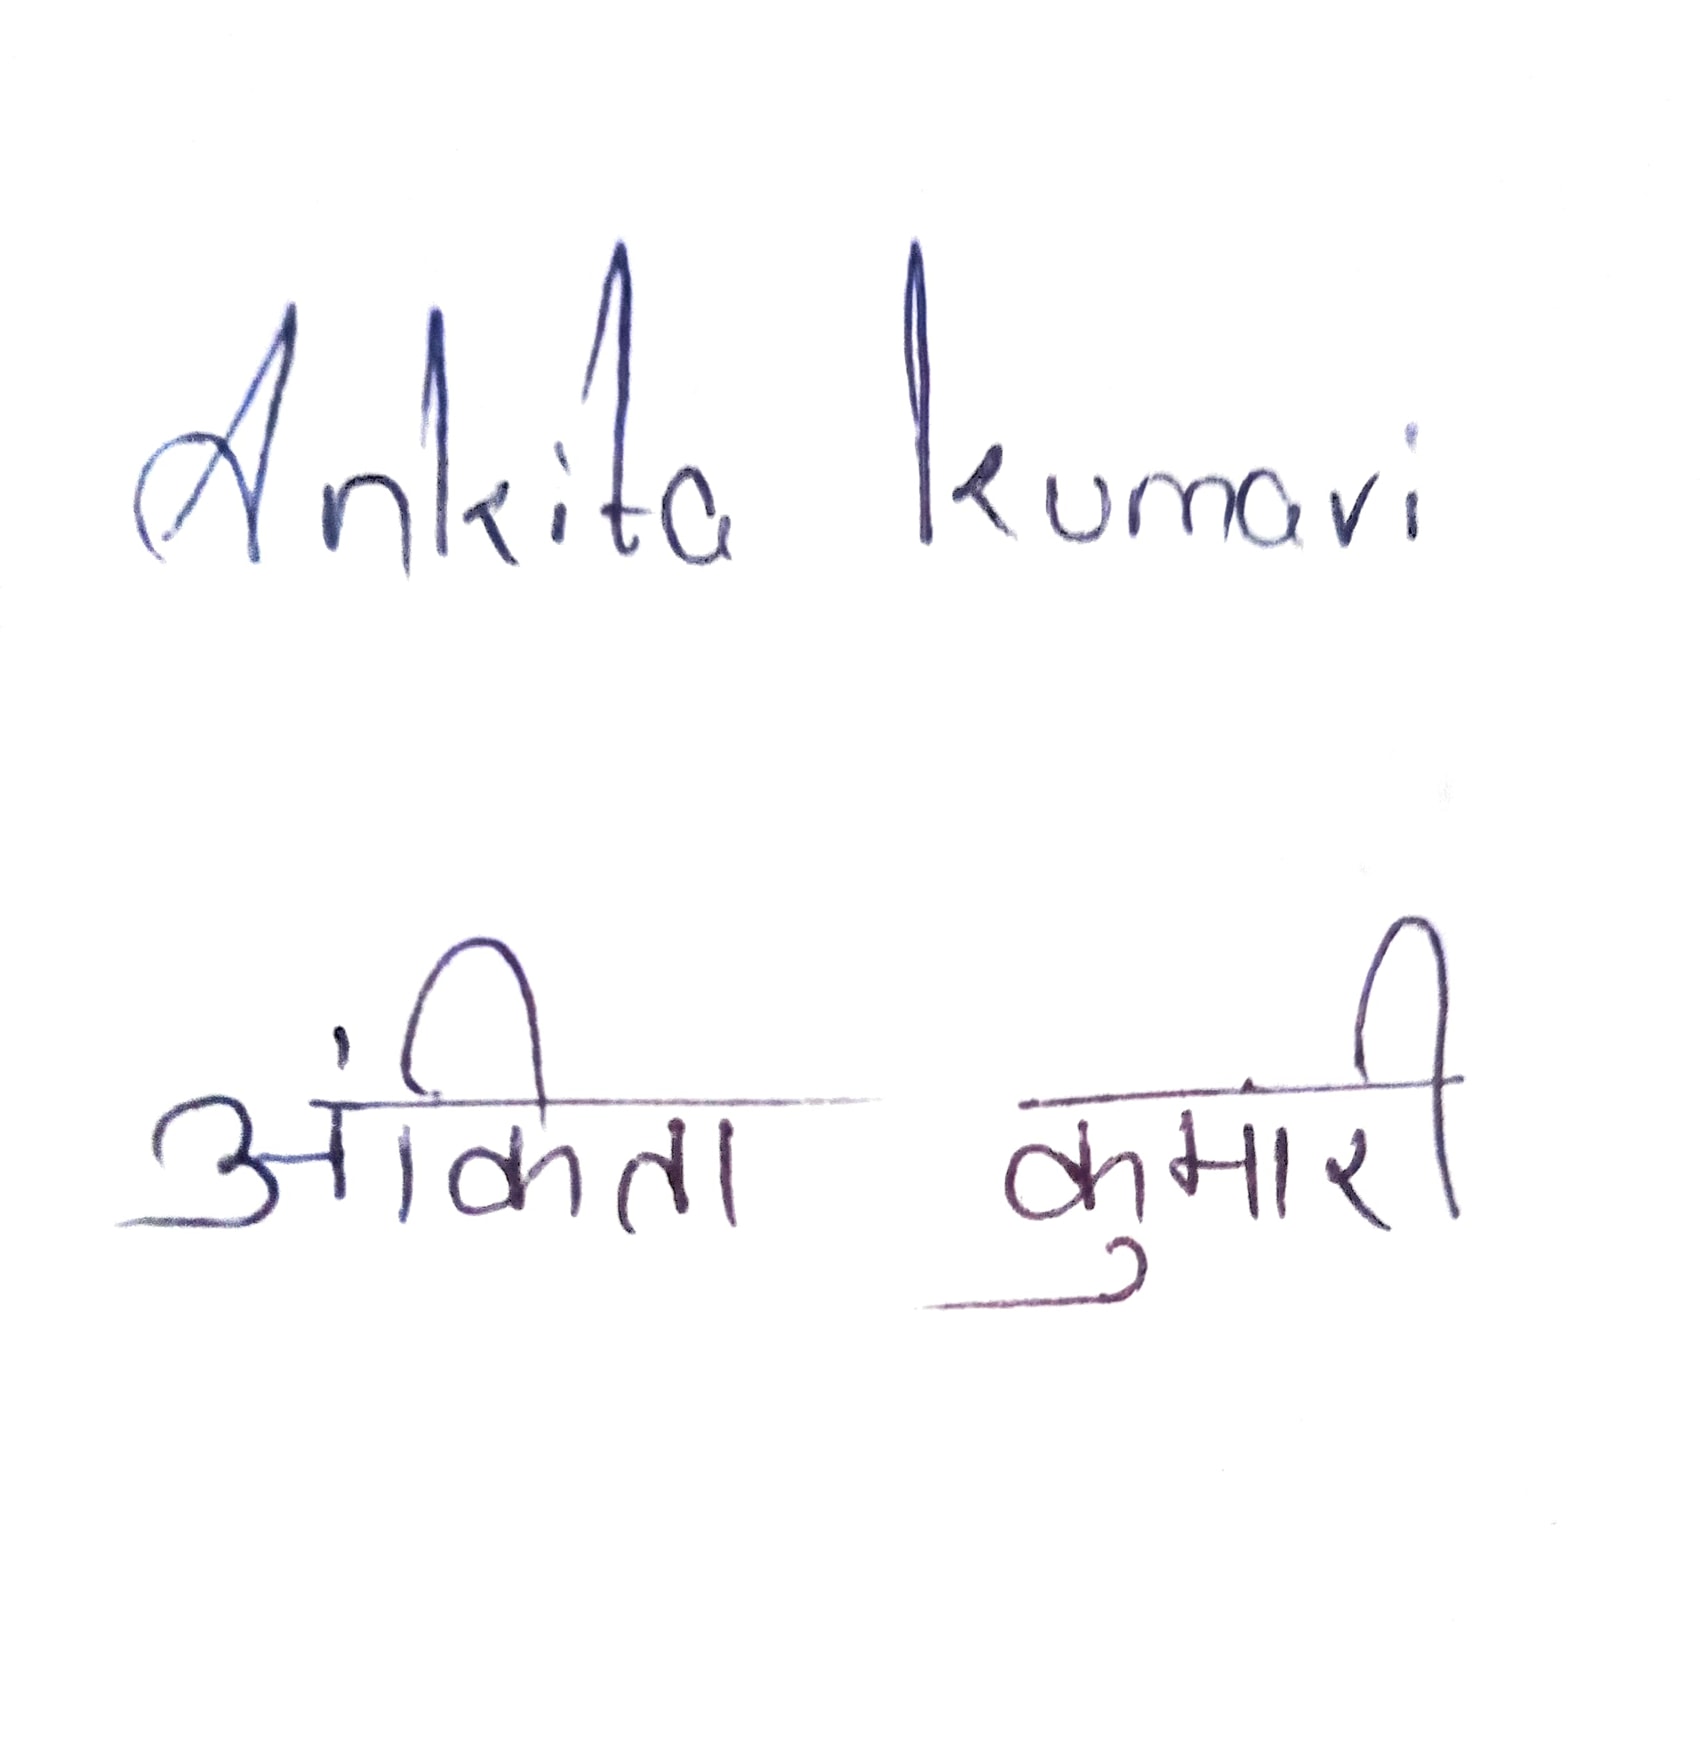 Ankita kumari
अंकिता कुमारी